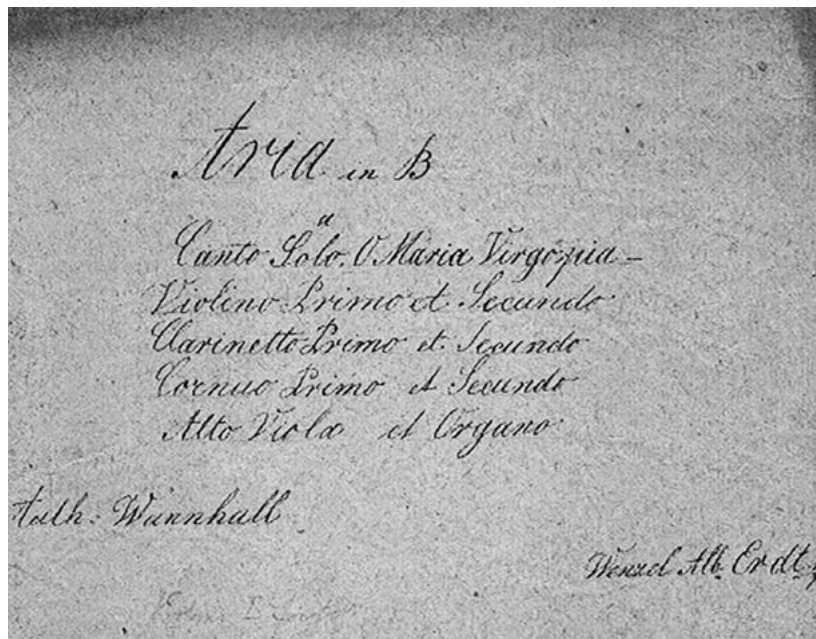 Aria in B
a
Canto Solo. O Maria Virgo pia –
Violino Primo et Secundo
Clarinetto Primo et Secundo
Cornuo Primo et Secundo
Alto Viola et Organo
Auth: Wannhall
Wenzel Alb. Erdt